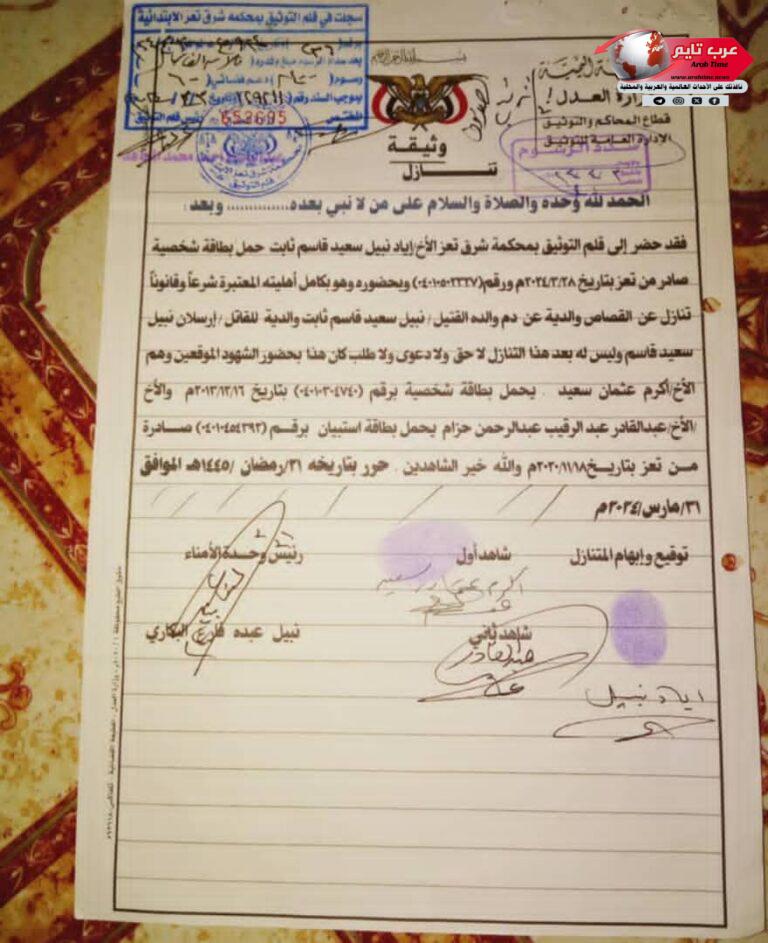 عرب تايم
Arab Time
www.arabtime.news
نافذتك على الأحداث العالمية والعربية والمحلية
سجلت في قلم التوثيق بمحكمة شرق تعز الابتدائية
برقم
رسوم
دعم قضائي
بموجب السند رقم
بتاريخ
المختص
رئيس قلم التوثيق
652695
وزارة العدل
قطاع المحاكم والتوثيق
الإدارة العامة للتوثيق
سدد الرسوم
وثيقة
تنازل
الحمد لله وحده والصلاة والسلام على من لا نبي بعده............. وبعد :
فقد حضر إلى قلم التوثيق بمحكمة شرق تعز الأخ/إياد نبيل سعيد قاسم ثابت حمل بطاقة شخصية
صادر من تعز بتاريخ ٢٠٢٤/٣/٢٨م ورقم(٠٤٠١٠٥٠٢٣٣٧) وبحضوره وهو بكامل أهليته المعتبرة شرعاً وقانوناً
تنازل عن القصاص والدية عن دم والده القتيل/ نبيل سعيد قاسم ثابت والدية للقاتل/ إرسلان نبيل
سعيد قاسم وليس له بعد هذا التنازل لا حق ولا دعوى ولا طلب كان هذا بحضور الشهود الموقعين وهم
الأخ/أكرم عثمان سعيد . يحمل بطاقة شخصية برقم (٠٤٠١٠٣٠٤٧٤٠) بتاريخ ٢٠١٣/١٢/١٦م والأخ
/الأخ/عبدالقادر عبد الرقيب عبدالرحمن حزام يحمل بطاقة استبيان برقم (٠٤٠١٠٤٥٤٣٩٢) صادرة
من تعز بتاريخ٢٠٢٠/١١/١٨م والله خير الشاهدين . حرر بتاريخه ٢١/رمضان /١٤٤٥هـ الموافق
٣١/مارس/٢٠٢٤م
توقيع وإبهام المتنازل
شاهد أول
رئيس وحدة الأمناء
اكرم عثمان سعيد
شاهد ثاني
نبيل عبده فارع البكاري
عبدالقادر
اياد نبيل